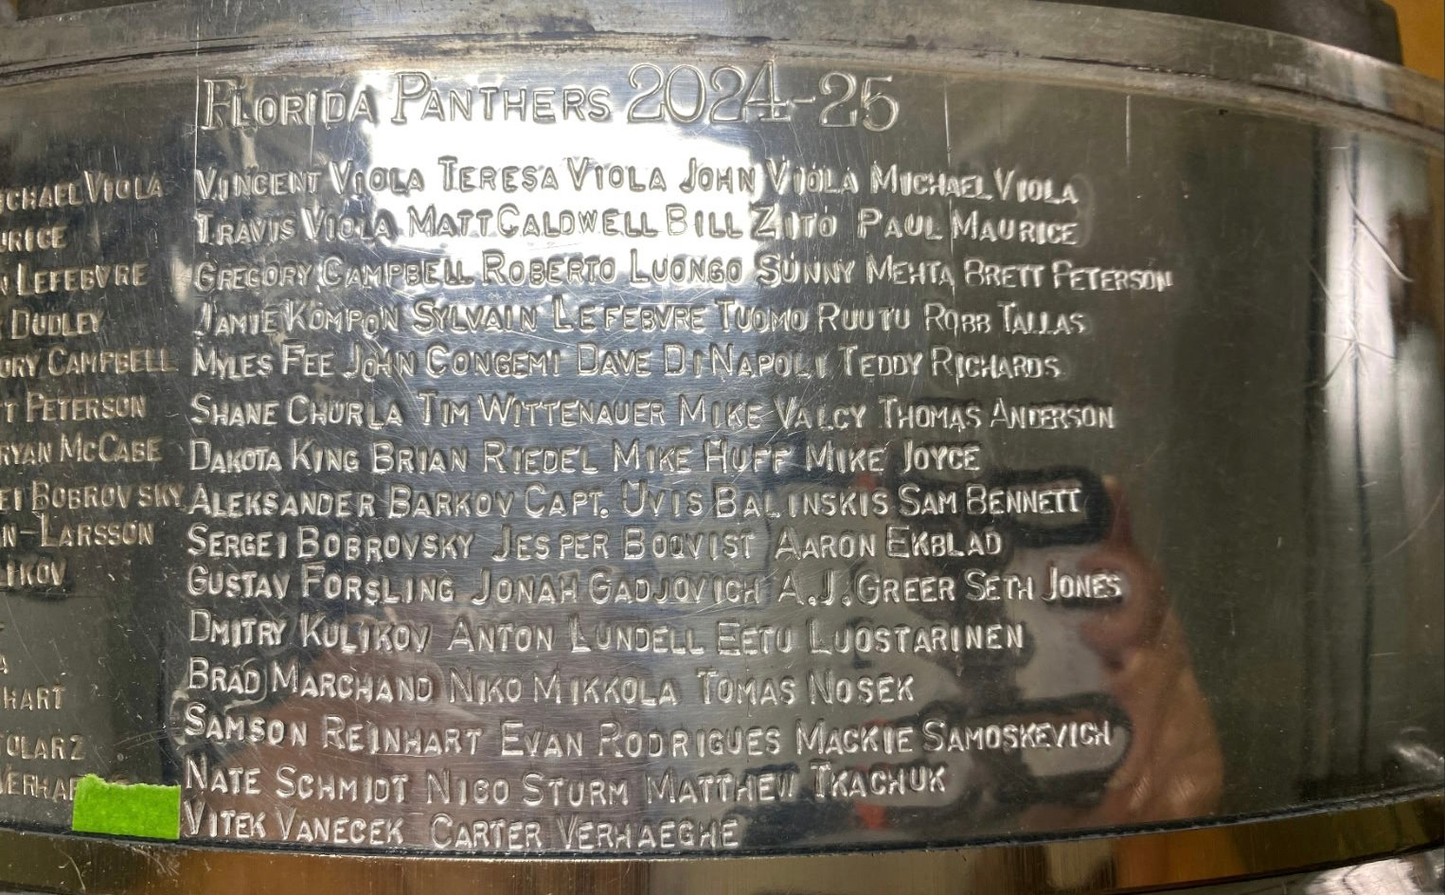 FLORIDA PANTHERS 2024-25
VINCENT VIOLA TERESA VIOLA JOHN VIOLA MICHAEL VIOLA
TRAVIS VIOLA MATT CALDWELL BILL ZITO PAUL MAURICE
GREGORY CAMPBELL ROBERTO LUONGO SUNNY MEHTA BRETT PETERSON
JAMIE KOMPON SYLVAIN LEFEBVRE TUOMO RUUTU ROBB TALLAS
MYLES FEE JOHN CONGEMI DAVE DINAPOLI TEDDY RICHARDS
SHANE CHURLA TIM WITTENAUER MIKE VALCY THOMAS ANDERSON
DAKOTA KING BRIAN RIEDEL MIKE HUFF MIKE JOYCE
ALEKSANDER BARKOV CAPT. UVIS BALINSKIS SAM BENNETT
SERGEI BOBROVSKY JESPER BOQVIST AARON EKBLAD
GUSTAV FORSLING JONAH GADJOVICH A.J. GREER SETH JONES
DMITRY KULIKOV ANTON LUNDELL EETU LUOSTARINEN
BRAD MARCHAND NIKO MIKKOLA TOMAS NOSEK
SAMSON REINHART EVAN RODRIGUES MACKIE SAMOSKEVICH
NATE SCHMIDT NICO STURM MATTHEW TKACHUK
VITEK VANECEK CARTER VERHAEGHE
ICHAEL VIOLA
URICE
N LEFEBVRE
DUDLEY
ORY CAMPBELL
T PETERSON
RYAN MCCABE
EI BOBROVSKY
N-LARSSON
LIKOV
HART
TOLARZ
VERHAE